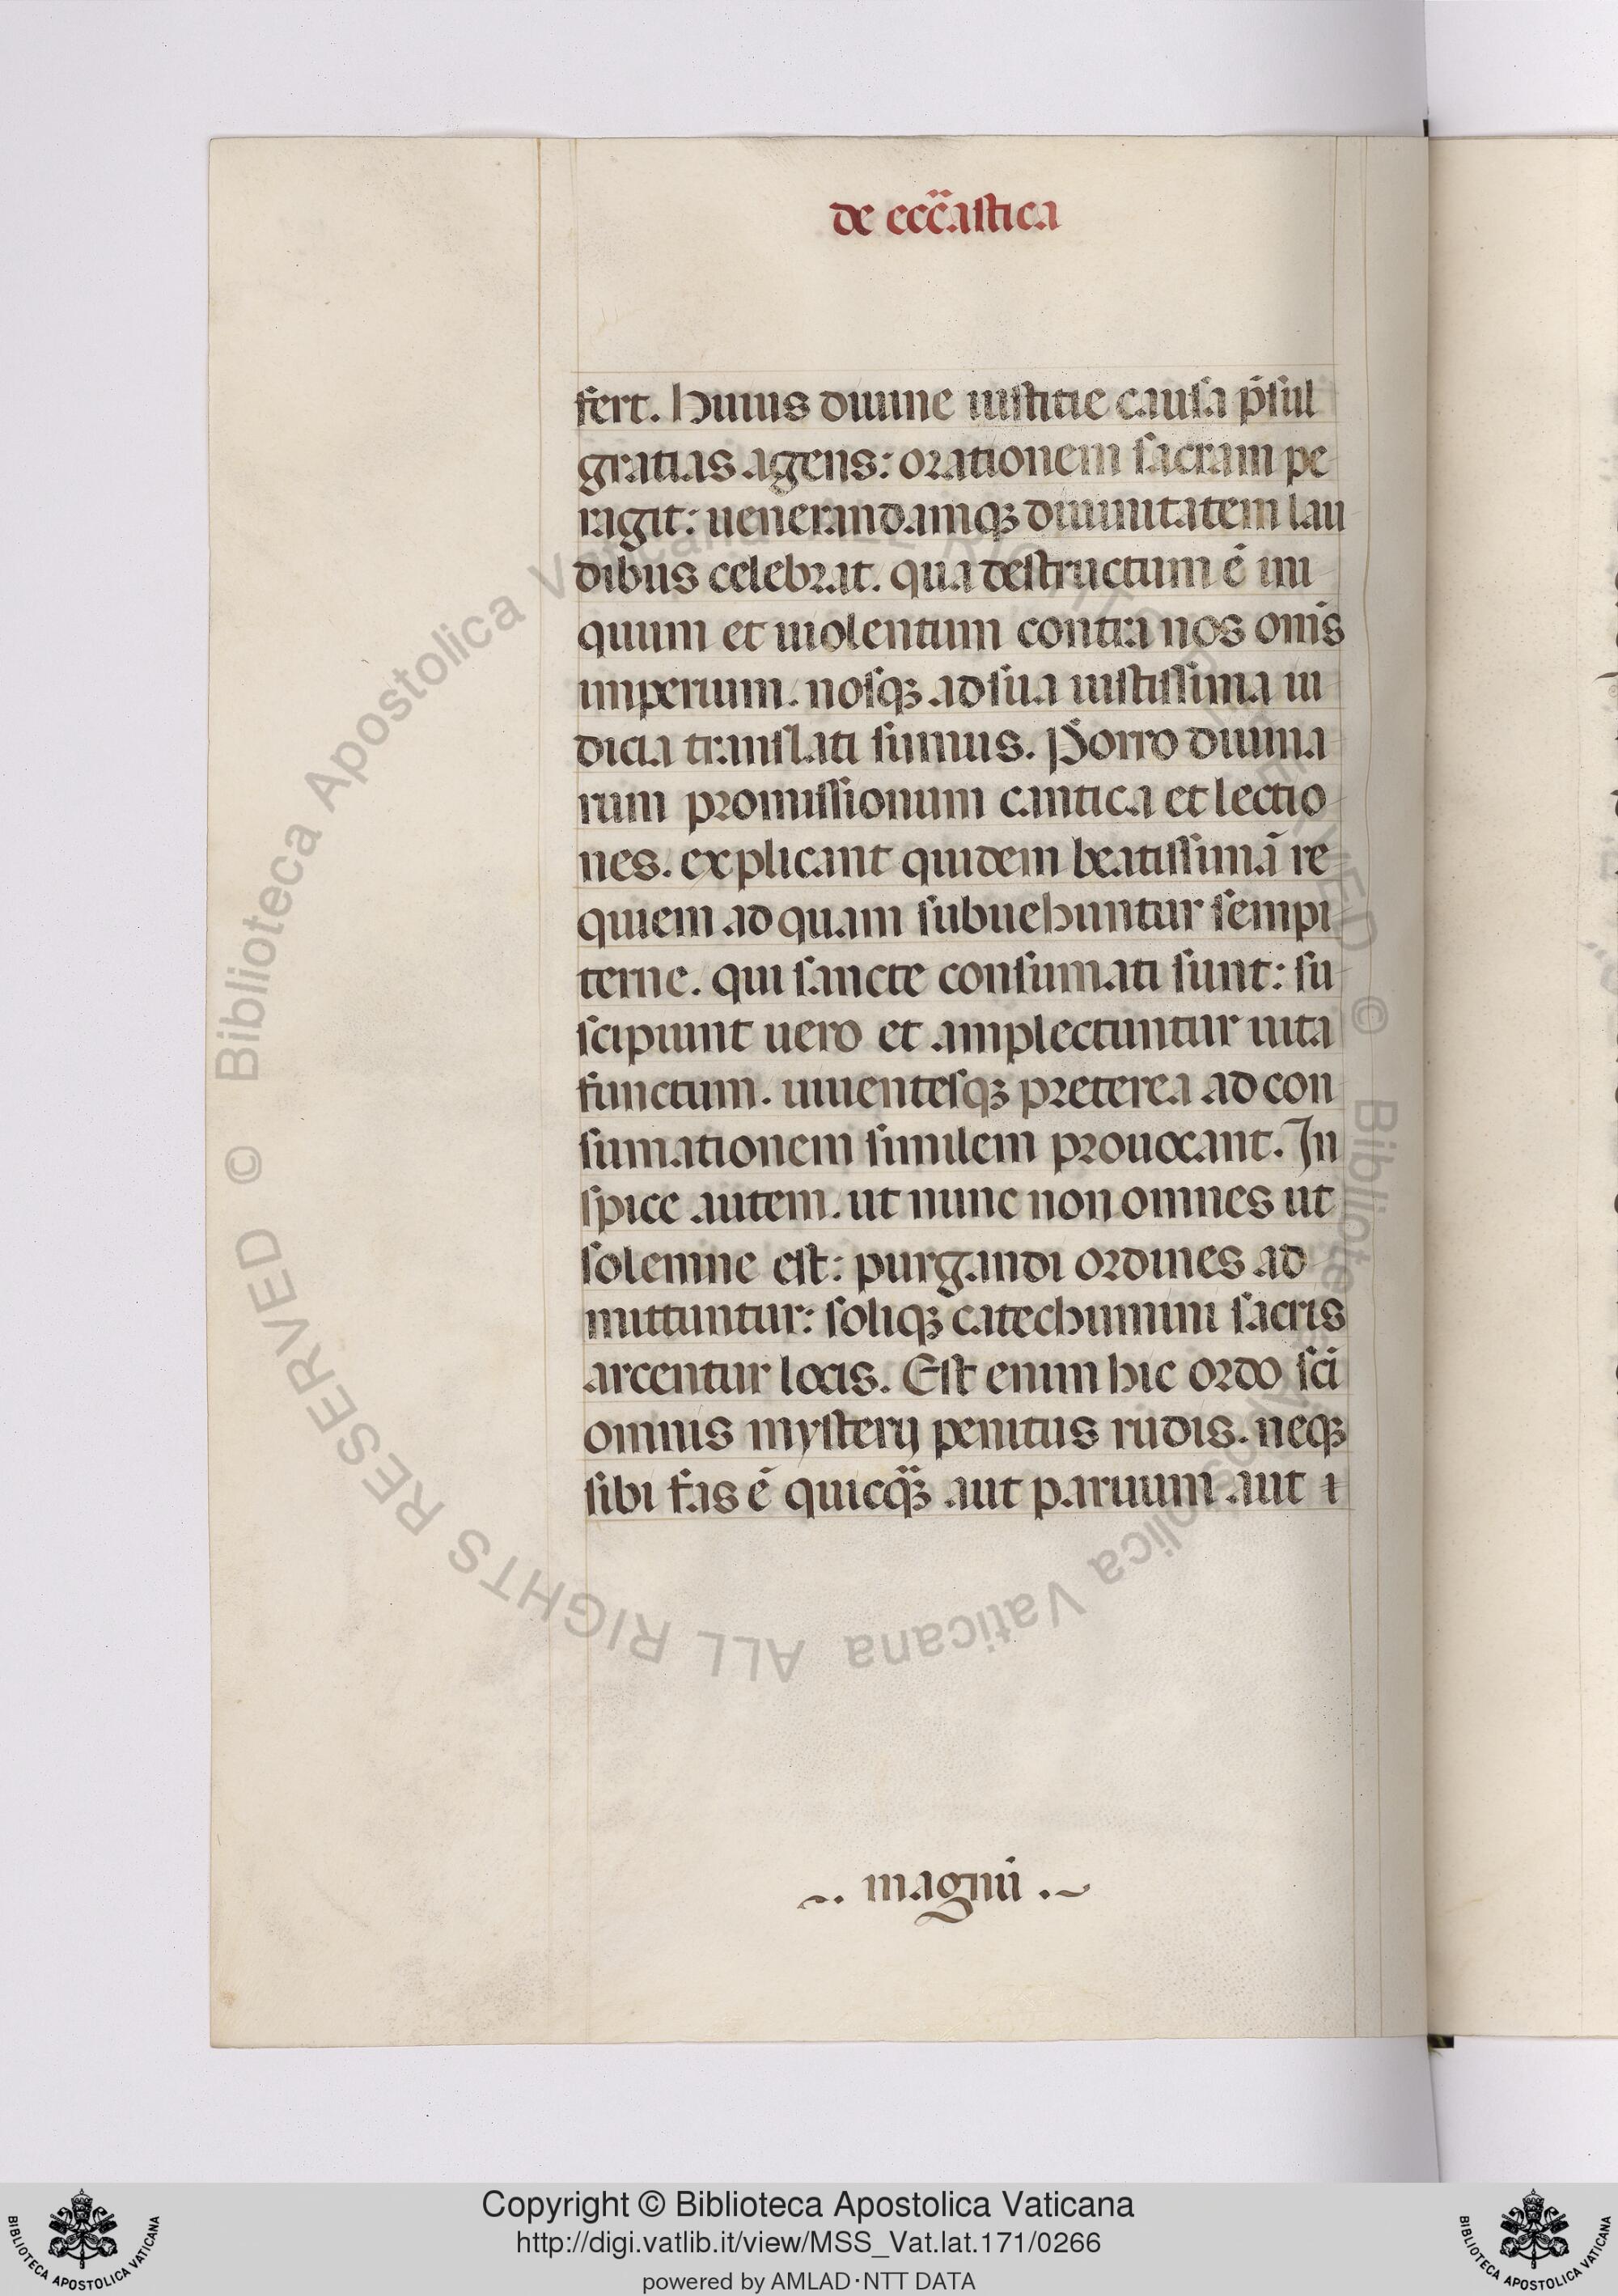 de ecc̈astica
fert. Huius diuine iustitie causa p̄sul
gratias agens: orationem sacram pe
ragit: uenerandamqꝫ diuinitatem lau
dibus celebrat. qua destructum ē ini
quum et uiolentum contra nos om̄is
imperium. nosqꝫ ad sua iustissima iu
dicia translati sumus. Porro diuina
rum promissionum cantica et lectio
nes. explicant quidem beatissimā re
quiem ad quam subuehuntur sempi
terne. qui sancte consumati sunt: su
scipiunt uero et amplectuntur uita
functum. uiuentesqꝫ preterea ad con
sumationem similem prouocant. In
spice autem. ut nunc non omnes ut
solemne est: purgandi ordines ad
mittuntur: soliqꝫ catechumini sacris
arcentur locis. Est enim hic ordo sc̄i
omnis mysterij penitus rudis. neqꝫ
sibi fas ē quicq̈ꝫ aut paruum aut ı
magni
© Biblioteca Apostolica Vaticana ALL RIGHTS RESERVED © Biblioteca Apostolica Vaticana ALL RIGHTS RESERVED
Copyright © Biblioteca Apostolica Vaticana
http://digi.vatlib.it/view/MSS_Vat.lat.171/0266
powered by AMLAD·NTT DATA
BIBLIOTECA APOSTOLICA VATICANA
BIBLIOTECA APOSTOLICA VATICANA